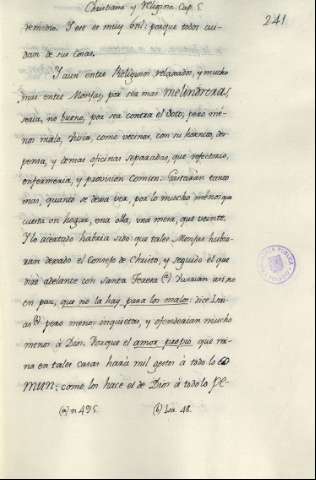 Christiana y Religiosa. Cap. 5.
241
remedio. Y ese es muy util: porque todos cui-
dan de sus cosas.
Y aun entre Religiosos relaxados, y mucho
mas entre Monjas, por ser mas melindrosas
seria, no bueno, por ser contra el Voto; pero mé-
nos malo, vivir, como vecinas, con su hornico, des-
pensa, y demas oficinas separadas, que refectorio,
enfermeria, y provision comun. Gastarán tanto
mas, quanto se dexa ver, por lo mucho ménos que
cuesta un hogar, una olla, una mesa, que veinte.
Y lo acertado habria sido que tales Monjas hubie-
ran dexado el Consejo de Christo, y seguido el que
mas adelante con Santa Teresa (a) vivirian asi no
en paz, que no la hay para los malos: dice Isai-
as (b) pero menos inquietas, y ofenderian mucho
menos à Dios. Porque el amor propio, que rei-
na en tales casas hará mil gestos à todo lo co
mun; como los hace el de Dios à todo lo pe-
(a) n. 495. (b) Isa. 48.